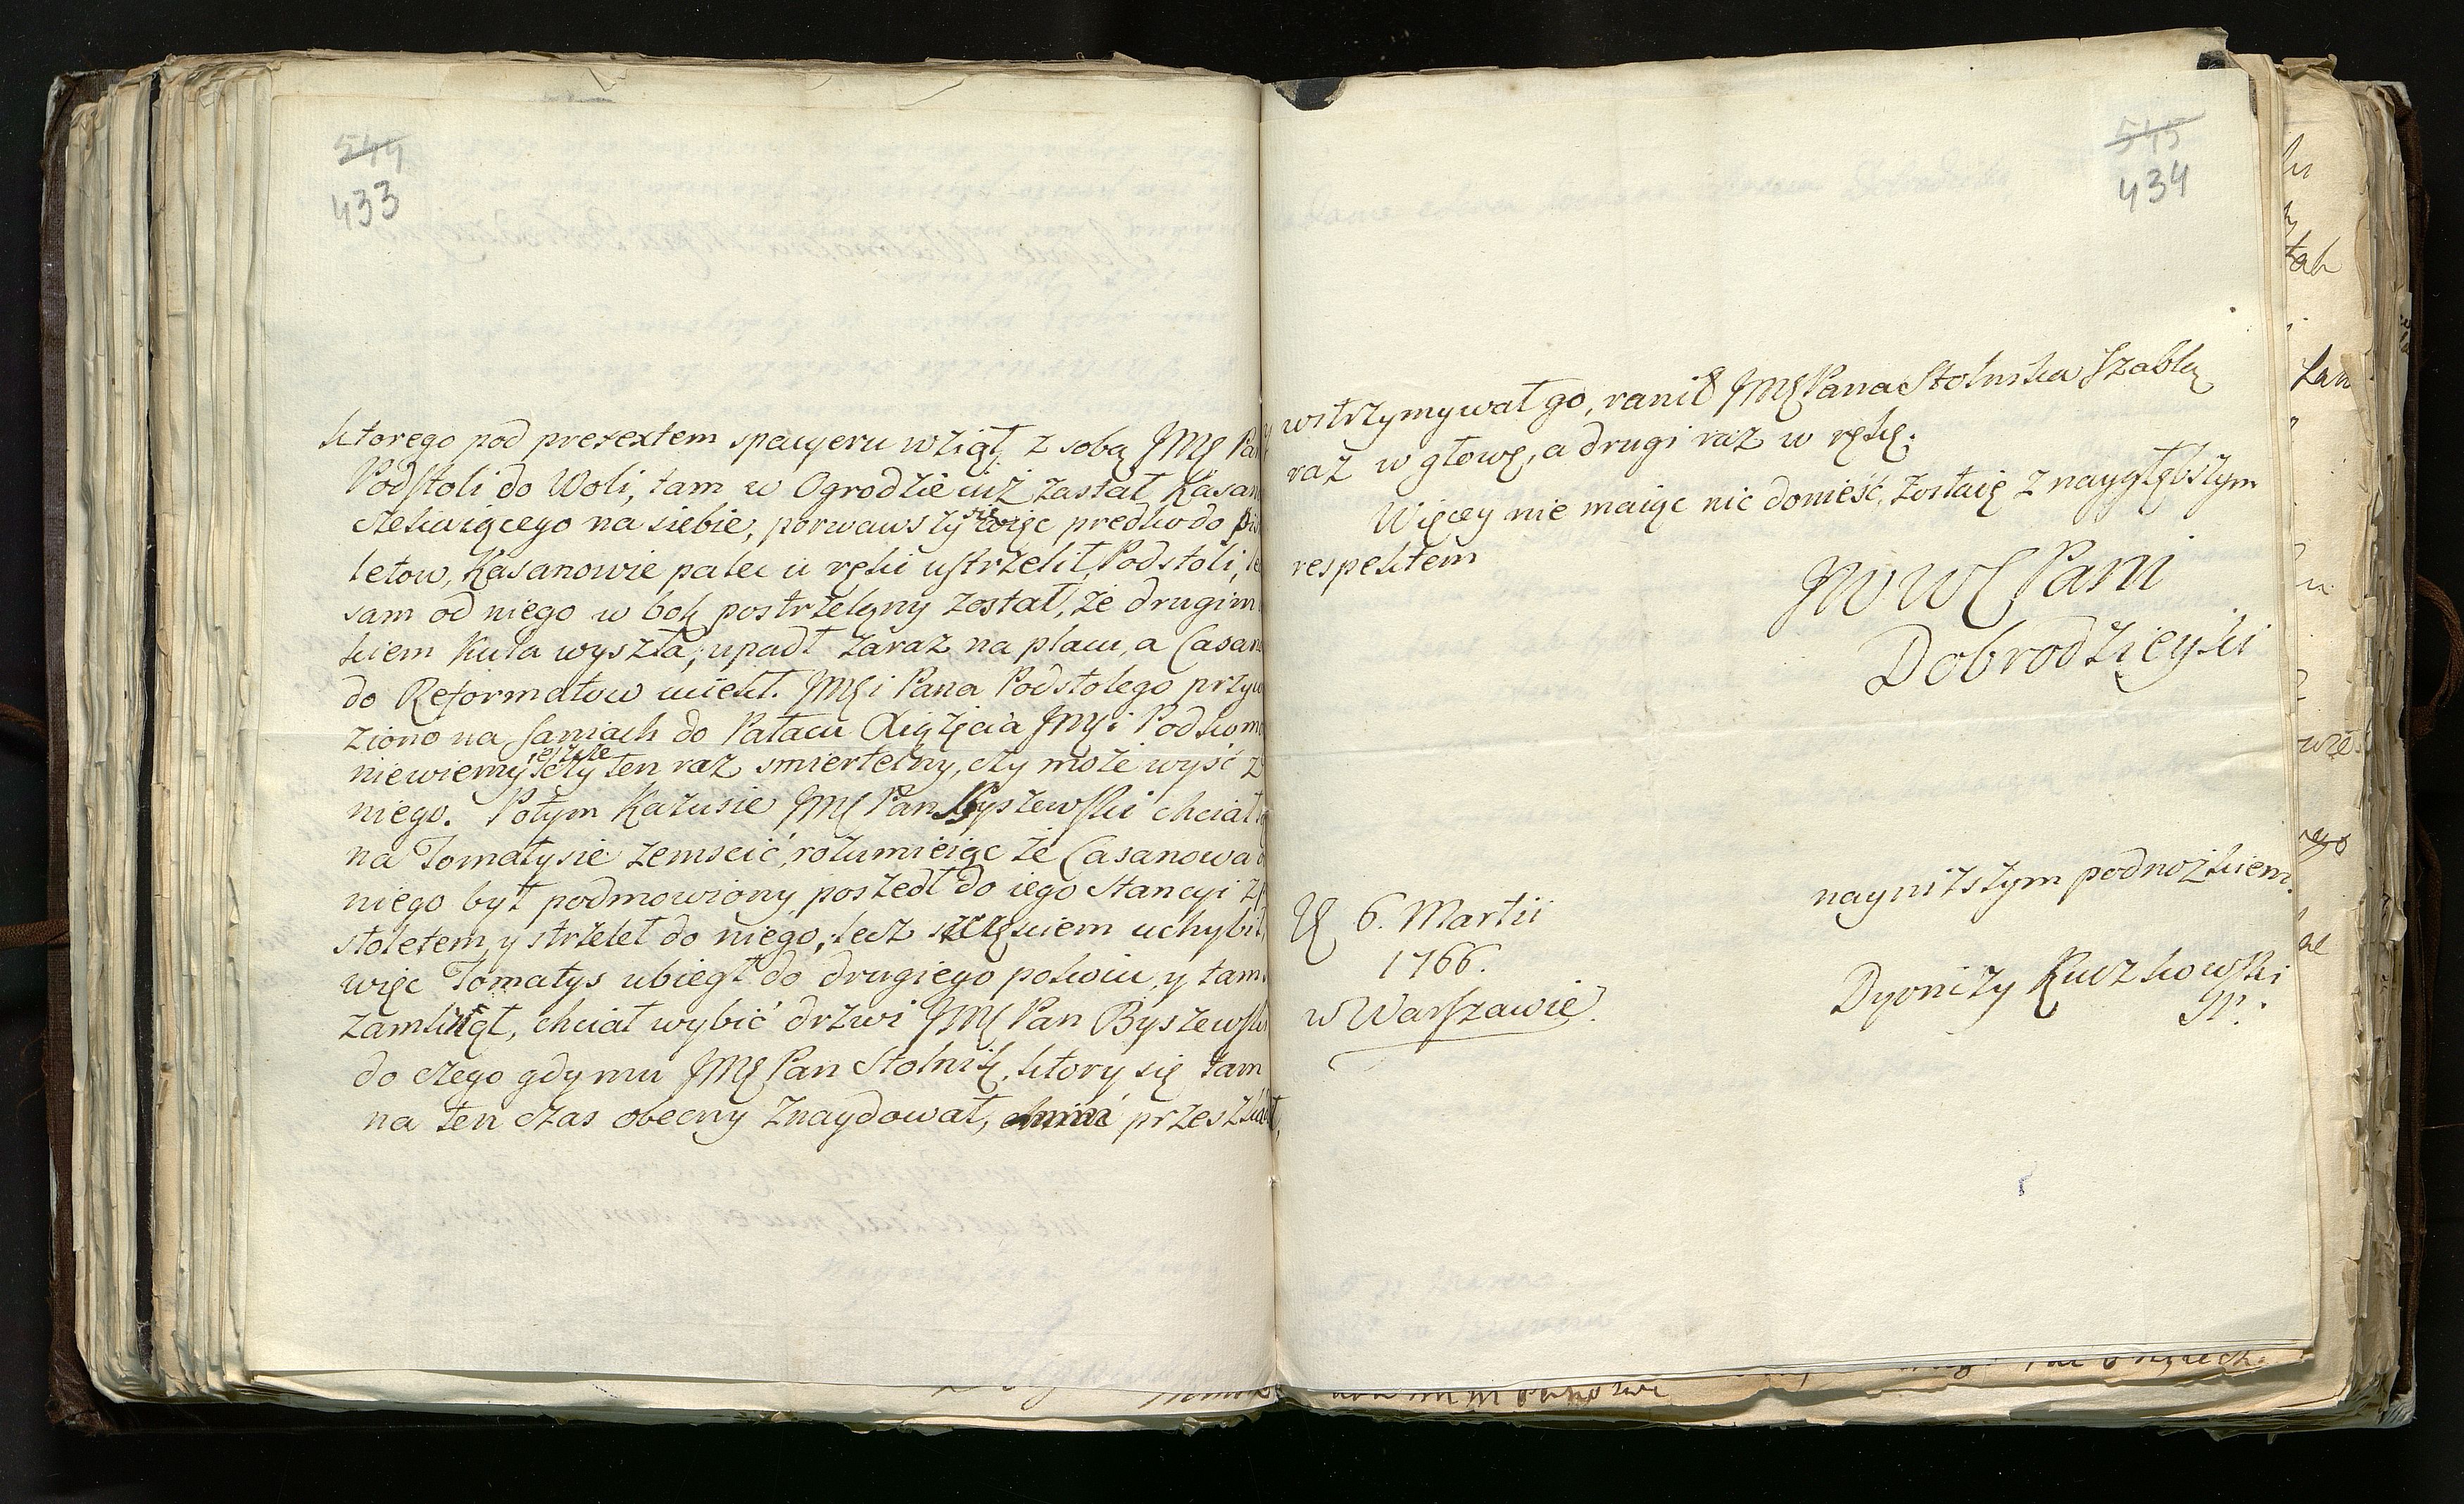 544
433
ktorego pod pretextem spacyeru wziął z sobą JMĘ Pa
Podstoli do Woli, tam w Ogrodzie iuż zastał Kasan
czekaiącego na siebie, porwawszy się więc prędko do pis
letow, Kasanowie palec u ręki ustrzelił Podstoli, le
sam od niego w bok postrzelony został, że drugim
kiem kula wyszła; upadł zaraz na placu, a Casan
do Reformatow uciekł. JMĘi Pana Podstolego przyw
ziono na saniach do Pałacu Xiążęcia JMĘi Podkom
niewiemy ieszcze czy ten raz smiertelny, czy może wyść z
niego. Potym Kazusie JMĘ Pan Byszewski chciał
na Tomatysie zemscić, rozumieiąc że Casanowa
niego był podmowiony poszedł do iego Stancyi z
stoletem, y strzelał do niego, lecz szczęściem uchybił,
więc Tomatys ubiegł do drugiego pokoiu, y tam
zamknął, chciał wybić drzwi JMĘ Pan Byszewski
do czego gdy mu JMĘ Pan Stolnik, ktory się tam
na ten czas obecny znaydował, przeszkadzał,
545
434
wstrzymywał go, ranił JMĘ Pana Stolnika szablą
raz w głowę, a drugi raz w rękę.
Więcey nie maiąc nic donieść, zostaię z naygłębszym
respektem
JWW Pani
Dobrodzieyki
naynizszym podnożkiem.
6. Martii
1766.
w Warszawie.
Dyonizy Kuczkowski